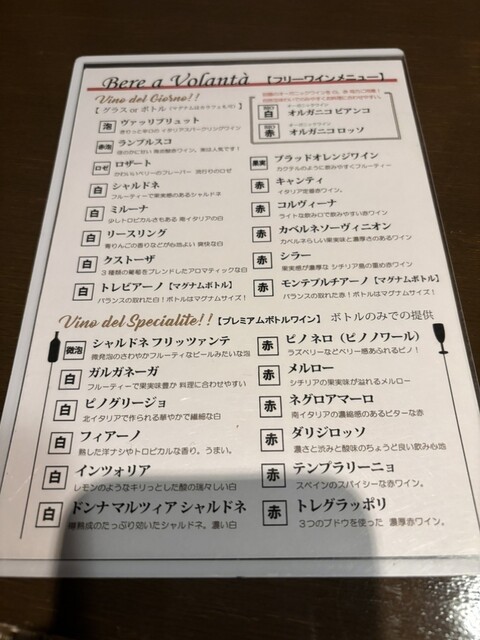 Bere a Volantà 【フリーワインメニュー】
Vino del Giorno!!
【グラス or ボトル (マグナムはカラフェも可)】
泡 ヴァッリブリュット
香りっと辛口の イタリアスパークリングワイン
赤泡 ランブルスコ
ロゼ ロザート
かわいいベリーのフレーバー 流行りのロゼ
白 シャルドネ
フルーティーで果実感のあるシャルドネ
白 ミルーナ
少しトロピカルさもある 南イタリアの白
白 リースリング
青りんごの香りなどが心地よい 爽快な白
白 クストーザ
3種類の葡萄をブレンドしたアロマティックな白
白 トレビアーノ【マグナムボトル】
バランスの取れた白！ボトルはマグナムサイズ！
オーガニックワイン
白 オルガニコ ビアンコ
オーガニックワイン
赤 オルガニコ ロッソ
果実 ブラッドオレンジワイン
カクテルのように飲みやすくフルーティー
赤 キャンティ
イタリア定番赤ワイン。
赤 コルヴィーナ
ライトな飲み口で飲みやすい赤ワイン
赤 カベルネソーヴィニオン
カベルネらしい果実味と濃厚さのあるワイン
赤 シラー
果実感が濃厚な シチリア島の重め赤ワイン
赤 モンテプルチアーノ【マグナムボトル】
バランスの取れた赤！ボトルはマグナムサイズ！
Vino del Specialite!!【プレミアムボトルワイン】 ボトルのみでの提供
微泡 シャルドネ フリッツァンテ
微発泡のさわやかフルーティなビールみたいな泡
白 ガルガネーガ
フルーティーで果実味豊か 料理に合わせやすい
白 ピノグリージョ
北イタリアで作られる華やかで繊細な白
白 フィアーノ
熟した洋ナシやトロピカルな香り。うまい。
白 インツォリア
レモンのようなキリっとした酸の瑞々しい白
白 ドンナ マルツィア シャルドネ
樽熟成のたっぷり効いたシャルドネ。濃い白
赤 ピノ ネロ（ピノノワール）
ラズベリーなどベリー感あふれるピノ！
赤 メルロー
シチリアの果実味が溢れるメルロー
赤 ネグロアマーロ
南イタリアの濃縮感のあるビターな赤
赤 ダリジロッソ
濃さと渋みと酸味のちょうど良い飲み心地
赤 テンプラリーニョ
スペインのスパイシーな赤ワイン。
赤 トレグラッポリ
3つのブドウを使った 濃厚赤ワイン。